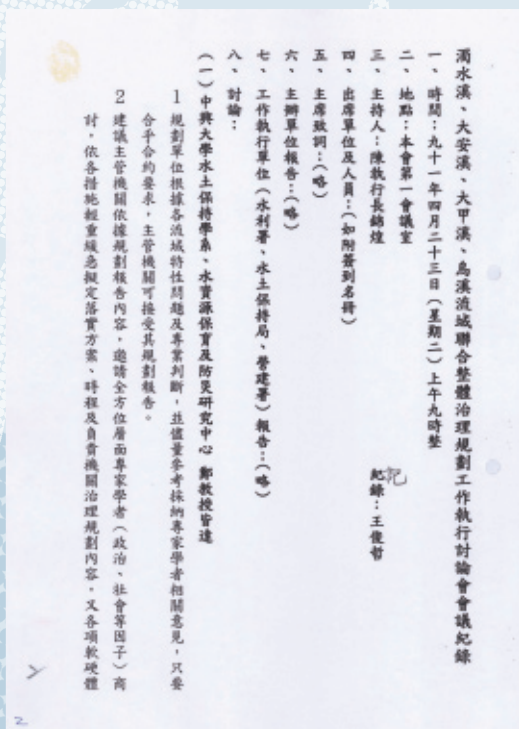 濁水溪、大安溪、大甲溪、烏溪流域聯合整體治理規劃工作執行討論會會議紀錄
一、時間：九十一年四月二十三日（星期二）上午九時整
二、地點：本會第一會議室
三、主持人：陳執行長錦煌 紀錄：王俊哲
記
四、出席單位及人員：（如附簽到名冊）
五、主席致詞：（略）
六、主辦單位報告：（略）
七、工作執行單位（水利署、水土保持局、營建署）報告：（略）
八、討論：
（一）中興大學水土保持學系、水資源保育及防災研究中心 鄭教授皆達
1 規劃單位根據各流域特性問題及專業判斷，並儘量參考採納專家學者相關意見，只要
合乎合約要求，主管機關可接受其規劃報告。
2 建議主管機關依據規劃報告內容，邀請全方位層面專家學者（政治、社會等因子）商
討，依各措施輕重緩急擬定落實方案、時程及負責機關治理規劃內容，又各項軟硬體
2